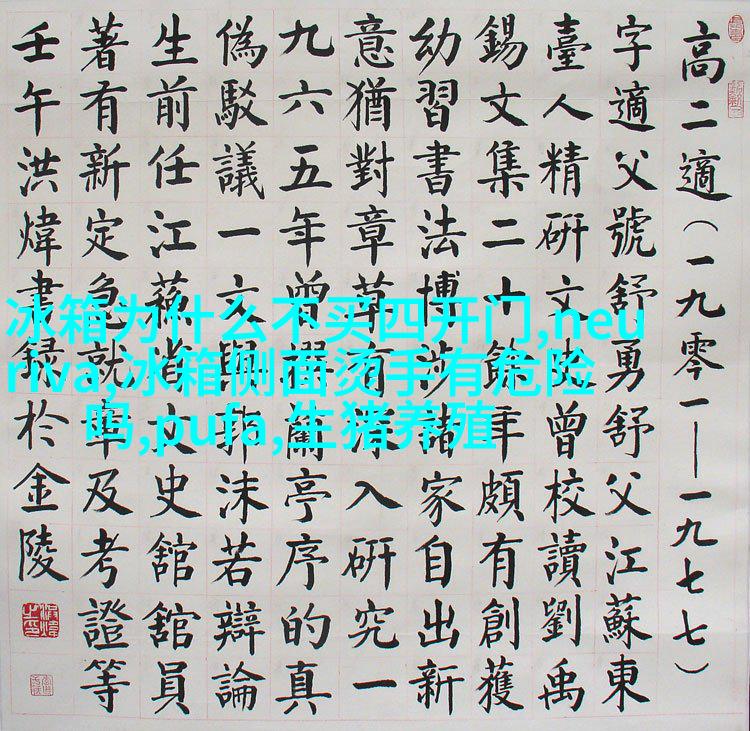 高二適(一九零一——一九七七)
字適父號舒勇舒父江蘇東
臺人精研文史曾校讀劉禹
錫文集二十餘年頗有創獲
幼習書法博涉諸家自出新
意猶對章草有深入研究一
九六五年曾撰蘭亭序的真
偽駁議一文與郭沫若辯論
生前任江蘇省文史舘舘員
著有新定急就章及考證等
壬午洪煒書録於金陵
冰箱为什么不买四开门,neu
riva,冰箱侧面烫手有危险
吗,pufa,生猪养殖